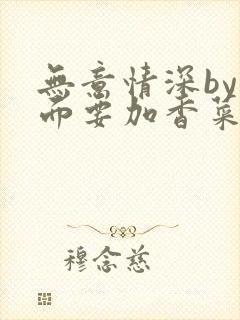 無意情深by
而要加香菜
穆念慈